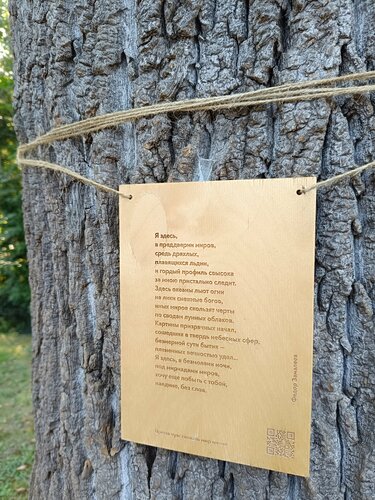 Я здесь,
в преддверии миров,
средь дряхлых,
плавящихся льдин,
и гордый профиль свысока
за мною пристально следит.
Здесь океаны льют огни
на лики снежные богов,
иных миров скользят черты
по сводам лунных облаков.
Картины призрачных начал,
сошедших в твердь небесных сфер,
безмерной сути бытия –
плененных вечностью удал..
Я здесь, в безмолвии ночи,
под мириадами миров,
хочу еще побыть с тобой,
наедине, без слов.
Федор Замалеев